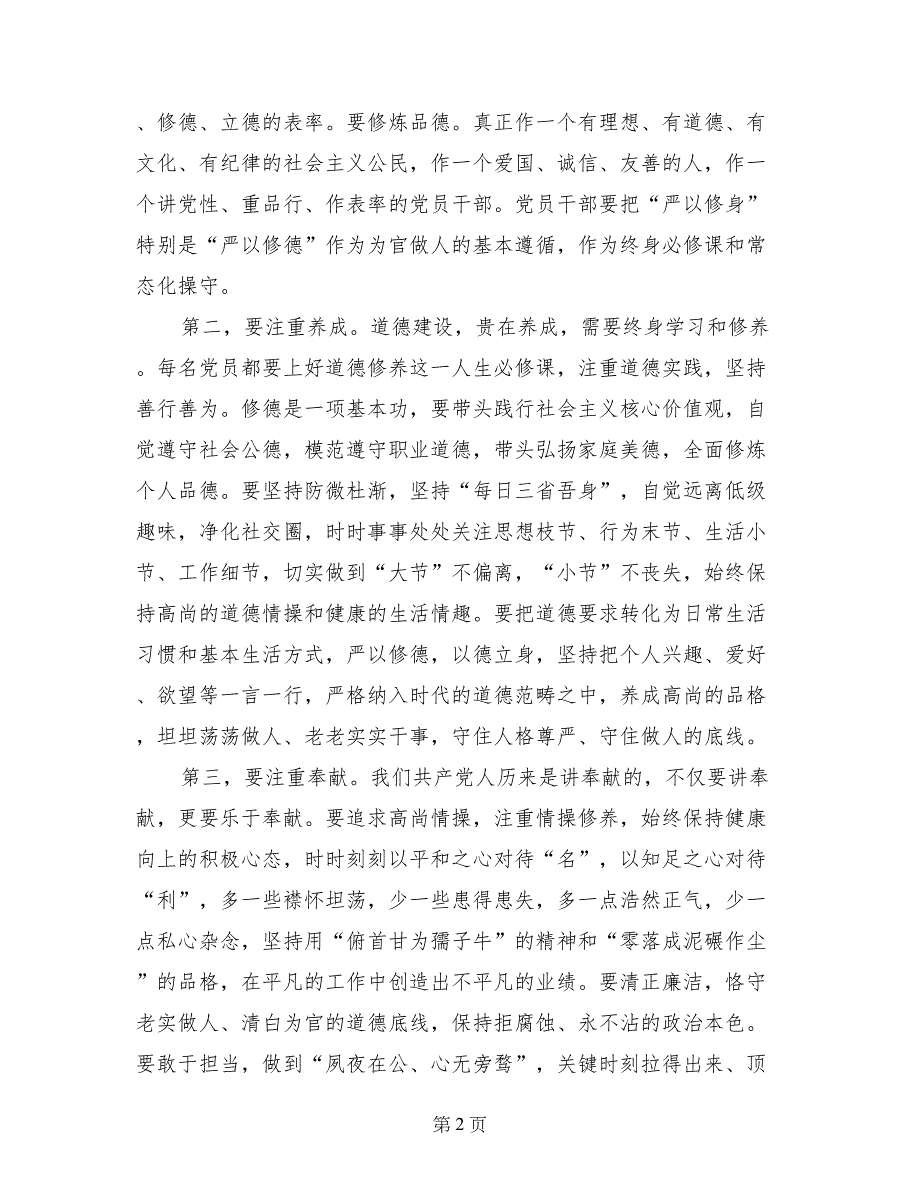 、修德、立德的表率。要修炼品德。真正作一个有理想、有道德、有
文化、有纪律的社会主义公民，作一个爱国、诚信、友善的人，作一
个讲党性、重品行、作表率的党员干部。党员干部要把“严以修身”
特别是“严以修德”作为为官做人的基本遵循，作为终身必修课和常
态化操守。
第二，要注重养成。道德建设，贵在养成，需要终身学习和修养
。每名党员都要上好道德修养这一人生必修课，注重道德实践，坚持
善行善为。修德是一项基本功，要带头践行社会主义核心价值观，自
觉遵守社会公德，模范遵守职业道德，带头弘扬家庭美德，全面修炼
个人品德。要坚持防微杜渐，坚持“每日三省吾身”，自觉远离低级
趣味，净化社交圈，时时事事处处关注思想枝节、行为末节、生活小
节、工作细节，切实做到“大节”不偏离，“小节”不丧失，始终保
持高尚的道德情操和健康的生活情趣。要把道德要求转化为日常生活
习惯和基本生活方式，严以修德，以德立身，坚持把个人兴趣、爱好
、欲望等一言一行，严格纳入时代的道德范畴之中，养成高尚的品格
，坦坦荡荡做人、老老实实干事，守住人格尊严、守住做人的底线。
第三，要注重奉献。我们共产党人历来是讲奉献的，不仅要讲奉
献，更要乐于奉献。要追求高尚情操，注重情操修养，始终保持健康
向上的积极心态，时时刻刻以平和之心对待“名”，以知足之心对待
“利”，多一些襟怀坦荡，少一些患得患失，多一点浩然正气，少一
点私心杂念，坚持用“俯首甘为孺子牛”的精神和“零落成泥碾作尘
”的品格，在平凡的工作中创造出不平凡的业绩。要清正廉洁，恪守
老实做人、清白为官的道德底线，保持拒腐蚀、永不沾的政治本色。
要敢于担当，做到“夙夜在公、心无旁骛”，关键时刻拉得出来、顶
第 2 页